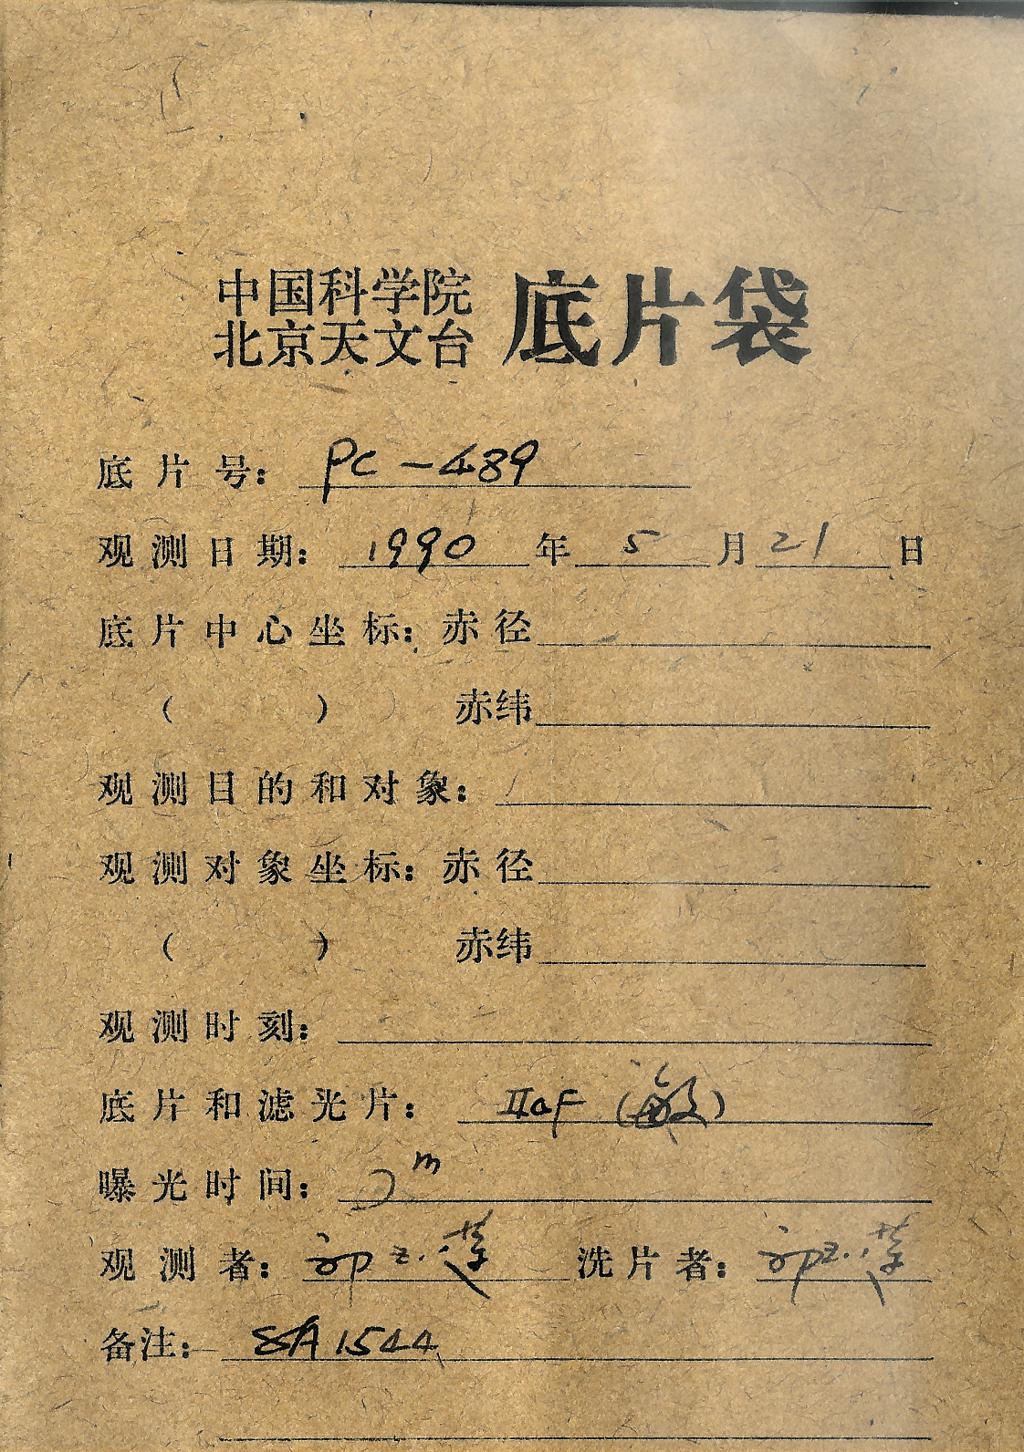 中国科学院
北京天文台 底片袋
底片号: PC-489
观测日期: 1990 年 5 月 21 日
底片中心坐标: 赤径
( ) 赤纬
观测目的和对象:
观测对象坐标: 赤径
( ) 赤纬
观测时刻:
底片和滤光片: IIaF (敏)
曝光时间: m
观测者: 洗片者:
备注: SA 1544